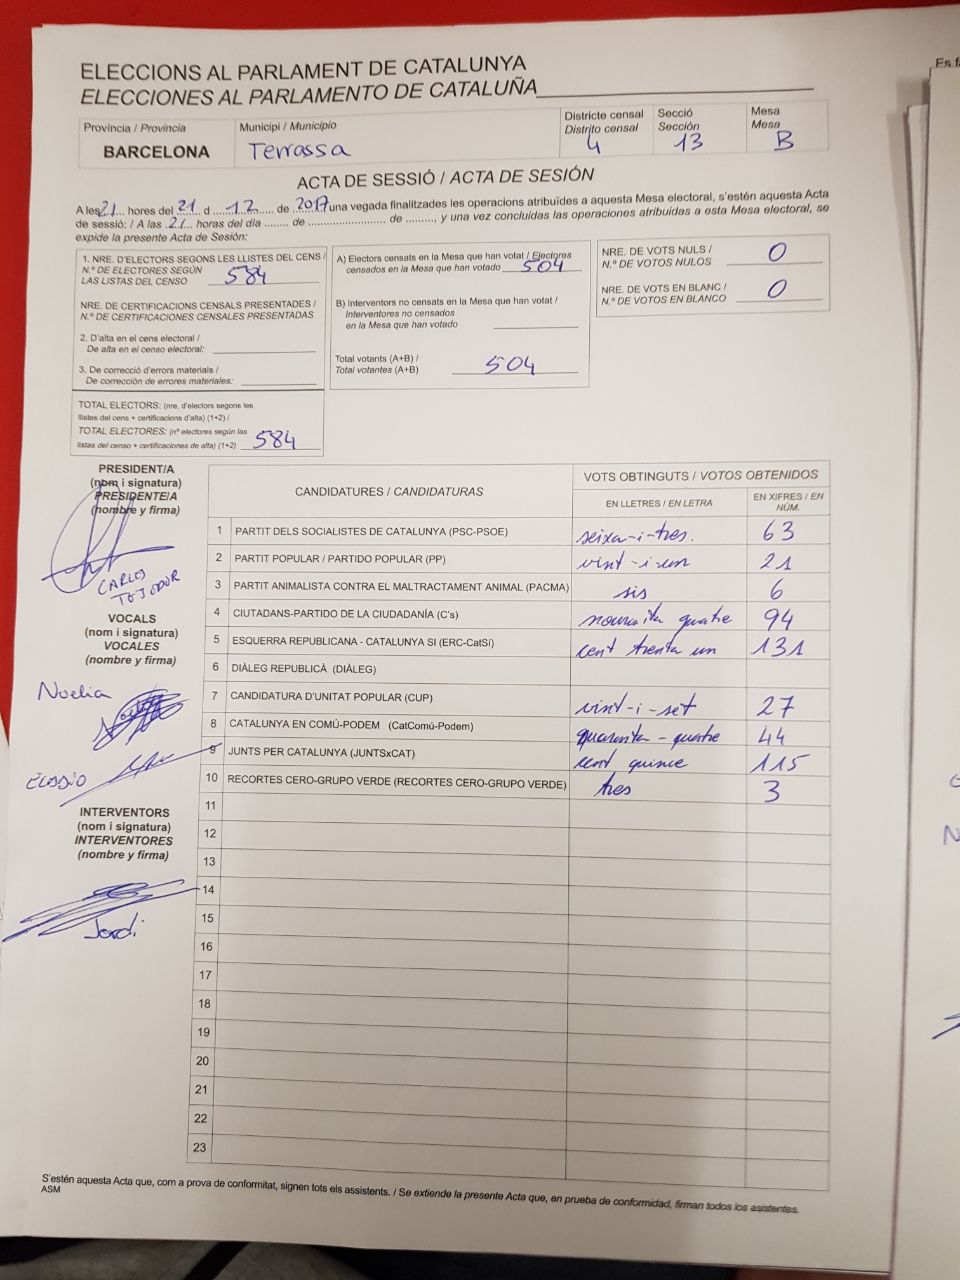 ELECCIONS AL PARLAMENT DE CATALUNYA
ELECCIONES AL PARLAMENTO DE CATALUÑA
Província / Provincia
BARCELONA
Municipi / Municipio
Terrassa
Districte censal
Distrito censal
4
Secció
Sección
13
Mesa
Mesa
B
ACTA DE SESSIÓ / ACTA DE SESIÓN
A les 21 hores del 21 d 12 de 2017 una vegada finalitzades les operacions atribuïdes a aquesta Mesa electoral, s'estén aquesta Acta
de sessió: / A las 21 horas del día ........ de ........................ de .......... y una vez concluidas las operaciones atribuidas a esta Mesa electoral, se
expide la presente Acta de Sesión:
1. NRE. D'ELECTORS SEGONS LES LLISTES DEL CENS /
N.º DE ELECTORES SEGÚN
LAS LISTAS DEL CENSO 584
NRE. DE CERTIFICACIONS CENSALS PRESENTADES /
N.º DE CERTIFICACIONES CENSALES PRESENTADAS
2. D'alta en el cens electoral /
De alta en el censo electoral:
3. De correcció d'errors materials /
De corrección de errores materiales:
TOTAL ELECTORS: (nre. d'electors segons les
llistes del cens + certificacions d'alta) (1+2) /
TOTAL ELECTORES: (nº electores según las
listas del censo + certificaciones de alta) (1+2) 584
A) Electors censats en la Mesa que han votat / Electores
censados en la Mesa que han votado 504
B) Interventors no censats en la Mesa que han votat /
Interventores no censados
en la Mesa que han votado
Total votants (A+B) /
Total votantes (A+B) 504
NRE. DE VOTS NULS /
N.º DE VOTOS NULOS 0
NRE. DE VOTS EN BLANC /
N.º DE VOTOS EN BLANCO 0
PRESIDENT/A
(nom i signatura)
PRESIDENTE/A
(nombre y firma)
CARLOS
VOCALS
(nom i signatura)
VOCALES
(nombre y firma)
Noelia
INTERVENTORS
(nom i signatura)
INTERVENTORES
(nombre y firma)
Jordi
CANDIDATURES / CANDIDATURAS
VOTS OBTINGUTS / VOTOS OBTENIDOS
EN LLETRES / EN LETRA
EN XIFRES / EN NÚM.
1 PARTIT DELS SOCIALISTES DE CATALUNYA (PSC-PSOE) seixa-i-tres. 63
2 PARTIT POPULAR / PARTIDO POPULAR (PP) vint-i-un 21
3 PARTIT ANIMALISTA CONTRA EL MALTRACTAMENT ANIMAL (PACMA) sis 6
4 CIUTADANS-PARTIDO DE LA CIUDADANÍA (C's) quatre 94
5 ESQUERRA REPUBLICANA - CATALUNYA SI (ERC-CatSí) cent trenta un 131
6 DIÀLEG REPUBLICÀ (DIÀLEG)
7 CANDIDATURA D'UNITAT POPULAR (CUP) vint-i-set 27
8 CATALUNYA EN COMÚ-PODEM (CatComú-Podem) quaranta-quatre 44
9 JUNTS PER CATALUNYA (JUNTSxCAT) cent quince 115
10 RECORTES CERO-GRUPO VERDE (RECORTES CERO-GRUPO VERDE) tres 3
11
12
13
14
15
16
17
18
19
20
21
22
23
S'estén aquesta Acta que, com a prova de conformitat, signen tots els assistents. / Se extiende la presente Acta que, en prueba de conformidad, firman todos los asistentes.
ASM